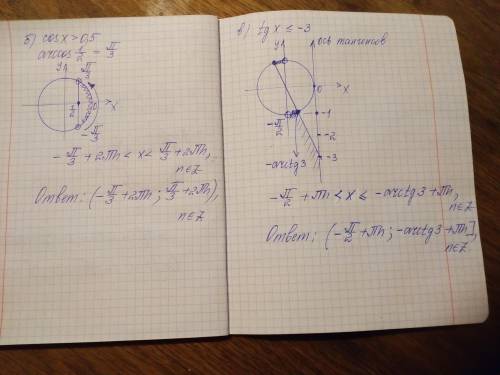 б) cos x > 0,5
arccos 1/2 = π/3
y
π/3
1/2
0
x
-π/3
-π/3 + 2πn < x < π/3 + 2πn,
n∈Z
Ответ: (-π/3 + 2πn ; π/3 + 2πn),
n∈Z
в) tg x ≤ -3
y
ось тангенсов
0
x
-1
-π/2
-2
-3
-arctg 3
-π/2 + πn < x ≤ -arctg 3 + πn,
n∈Z
Ответ: (-π/2 + πn ; -arctg 3 + πn],
n∈Z.